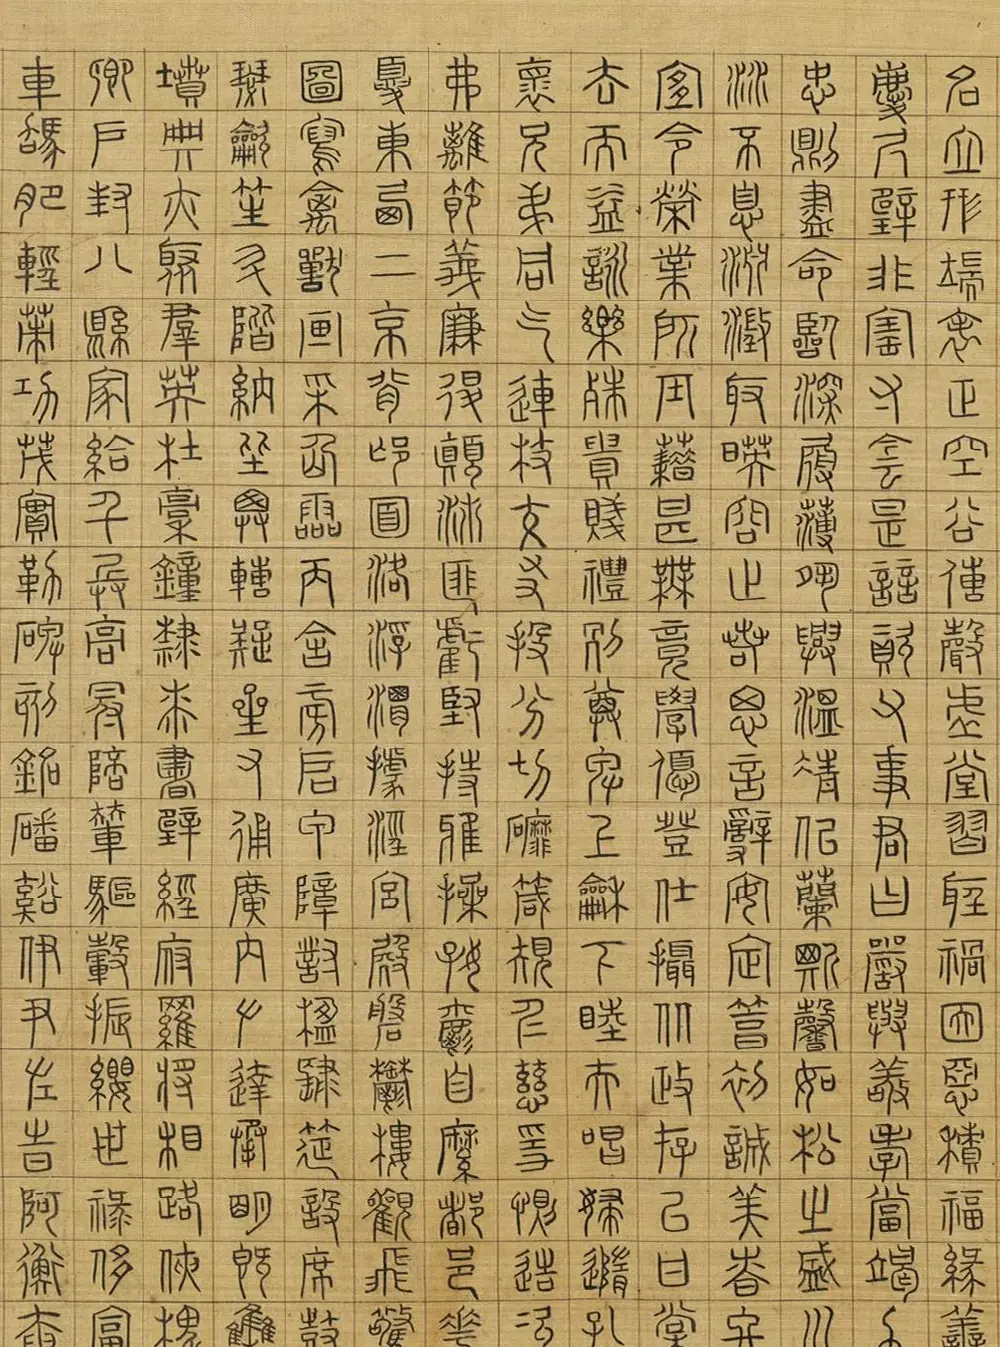 名立形端表正空谷傳聲虛堂習聽禍因惡積福緣善
慶尺璧非寶寸陰是競資父事君曰嚴與敬孝當竭力
忠則盡命臨深履薄夙興溫凊似蘭斯馨如松之盛川
流不息淵澄取暎容止若思言辭安定篤初誠美慎終
宜令榮業所基籍甚無竟學優登仕攝从政存以甘棠
去而益詠樂殊貴賤禮別尊卑上和下睦夫唱婦隨孔
懷兄弟同氣連枝交友投分切磨箴規仁慈隱惻造次
弗離節義廉退顛沛匪虧堅持雅操好爵自縻都邑華
夏東西二京背邙面洛浮渭據涇宮殿盤鬱樓觀飛驚
圖寫禽獸畫采仙靈丙舍傍啟甲帳對楹肆筵設席鼓
瑟吹笙升階納陛弁轉疑星右通廣內左達承明既集
墳典亦聚群英杜稾鐘隸漆書壁經府羅將相路俠槐
卿戶封八縣家給千兵高冠陪輦驅轂振纓世祿侈富
車駕肥輕策功茂實勒碑刻銘磻谿伊尹佐時阿衡奄